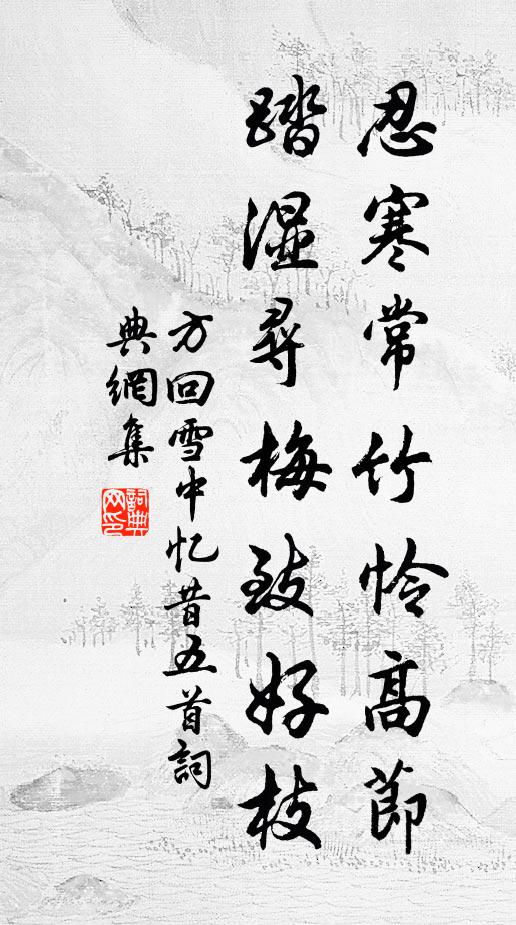 忍寒常竹怜高節
踏湿尋梅致好枝
方回雪中忆昔五首詞
典網集
詞典网印